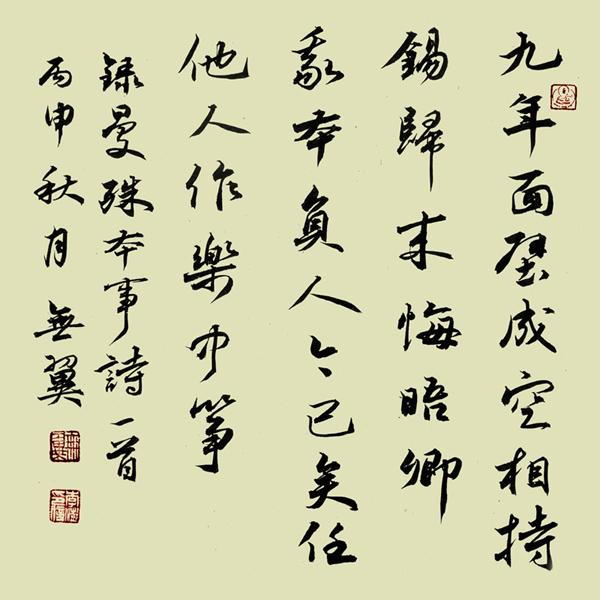 九年面壁成空相持
錫歸來悔晤卿
我本負人今已矣任
他人作樂中箏
錄曼殊本事詩一首
丙申秋月 無翼